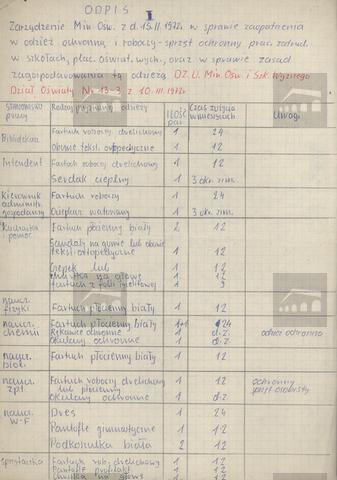 ODPIS I
Zarządzenie Min. Ośw. z d. 15.II.1972r. w sprawie zaopatrzenia
w odzież ochronną i roboczą - sprzęt ochronny prac. zatrud.
w szkołach, plac. oświat. wych., oraz w sprawie zasad
zagospodarowania tą odzieżą. DZ. U. Min. Ośw. i Szk. Wyższego
Dział Oświaty Nr 13-3 z 10.III.1972r
Stanowisko pracy Rodzaj odzieży Ilość par Czas zużycia w miesiącach Uwagi
Bibliotekarz Fartuch roboczy drelichowy 1 24
Obuwie tekst. ortopedyczne 1 12
Intendent Fartuch roboczy drelichowy 1 12
Serdak ciepliny 1 3 okr. zim.
Kierownik Fartuch roboczy 1 24
administr.
gospodarczy Ocieplacz watowany 1 3 okr. zim.
Kucharka Fartuch płócienny biały 2 12
i pomoc. Sandały na gumie lub obuwie
tekst. ortopedyczne 1 12
Czepek lub 1 12
chustka na głowę 1 12
fartuch z folii 1 3
naucz.
fizyki Fartuch płócienny biały 1 12
naucz. Fartuch płócienny biały 1+1 24
chemii Rękawice ochronne 1 d.z. odzież ochronna
Okulary ochronne 1 d.z.
naucz. Fartuch płócienny biały 1 12
biol.
naucz. Fartuch roboczy drelichowy 1 12 ochronny
zpt. lub płócienny
Okulary ochronne 1 d.z.
naucz. Dres 1 24
W-F Pantofle gimnastyczne 1 12
Podkoszulka biała 2 12
Sprzątaczka Fartuch rob. drelichowy 1 12
Pantofle profilakt. 1 12
Chustka na głowę 1 12